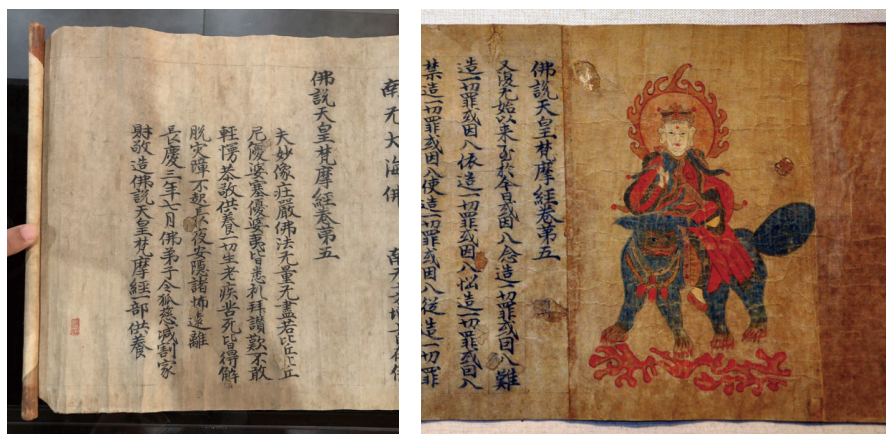 南无大海佛
佛說天皇梵摩經卷第五
夫妙像庄嚴佛法无量无盡若比〻丘〻
尼優婆塞優婆夷皆悉礼拜讃歎不敢
輕慢恭敬供養一切生老疾苦死皆得解
脱灾障不恕長夜安隱諸怖遠離
長慶三年七月佛弟子令狐慈減割家
財敬造佛說天皇梵摩經一部供養
佛說天皇梵摩經卷第五
又復无始以来至於今日或因八念造一切罪或因八難
造一切罪或因八依造一切罪或因八惱造一切罪或因八
禁造一切罪或因八使造一切罪或因八従造一切罪